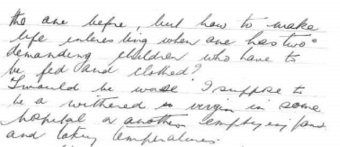 the one before, but how to make
life interesting when one has two
demanding children who have to
be fed and clothed?
I would be worse I suppose to
be a withered virgin in some
hospital or another emptying pans
and taking temperatures.